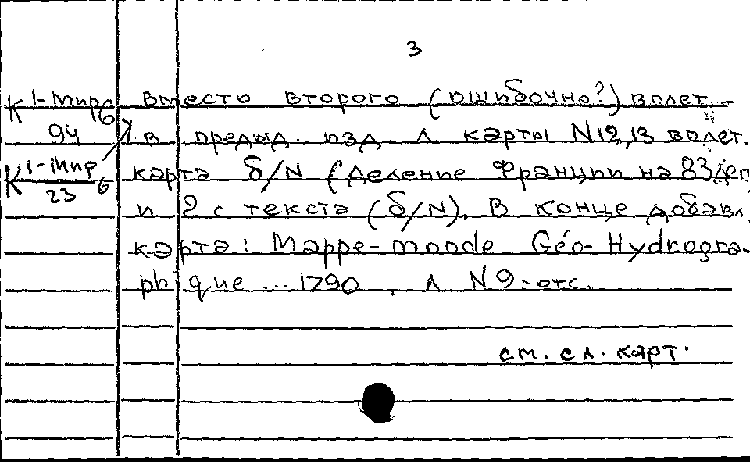 3
К 1-Мир/94 б вместо второго (ошибочно?) вплет.
в предыд. изд. л карты N 12, 13 вплет.
К 1-Мир/23 б карта б/N (Деление Франции на 83 деп
и 2 с текста (б/N). В конце добавл.
карта: Mappe-monde Géo-Hydrogra-
phique ... 1790. л N 9. отс.
см. сл. карт.